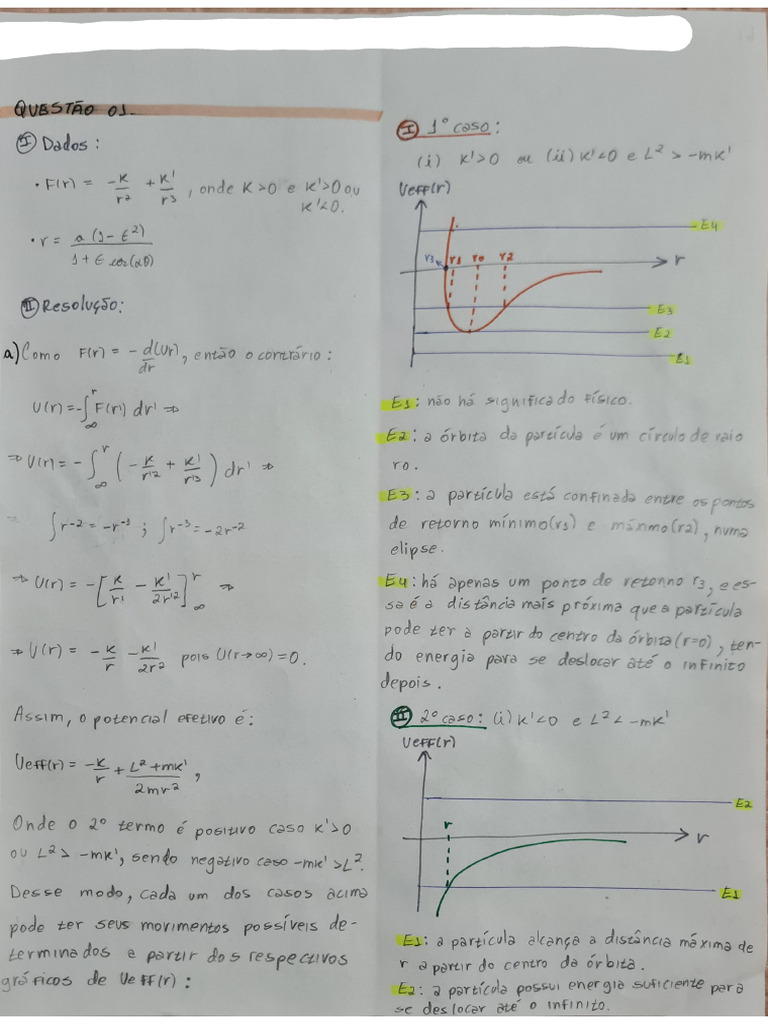 QUESTÃO 01.
I Dados:
• F(r) = -k/r² + k'/r³, onde K>0 e K'>0 ou
K'<0.
• r = a(1-ε²)/1+ε cos(αθ)
II Resolução:
a) Como F(r) = -d(Ur)/dr, então o contrário:
U(r) = -∫_∞^r F(r') dr' ⇒
⇒ U(r) = -∫_∞^r (-k/r'² + k'/r'³) dr' ⇒
∫r⁻² = -r⁻¹ ; ∫r⁻³ = -2r⁻²
⇒ U(r) = -[k/r' - k'/2r'²]_∞^r ⇒
⇒ U(r) = -k/r - k'/2r² pois U(r→∞)=0.
Assim, o potencial efetivo é:
Ueff(r) = -k/r + L²+mk'/2mr²,
Onde o 2º termo é positivo caso K'>0
ou L²> -mk', sendo negativo caso -mk'>L².
Desse modo, cada um dos casos acima
pode ter seus movimentos possíveis de-
terminados a partir dos respectivos
gráficos de Ueff(r):
I 1º caso:
(i) K'>0 ou (ii) K'<0 e L² > -mk'
Ueff(r)
E4
r3 r1 r0 r2 r
E3
E2
E1
E1: não há significado físico.
E2: a órbita da partícula é um círculo de raio
r0.
E3: a partícula está confinada entre os pontos
de retorno mínimo(r1) e máxmo(r2), numa
elipse.
E4: há apenas um ponto de retonno r3, e es-
sa é a distância mais próxima que a partícula
pode ter a partir do centro da órbita(r=0), ten-
do energia para se deslocar até o infinito
depois.
II 2º caso: (i) K'<0 e L² < -mk'
Ueff(r)
E2
r
r
E1
E1: a partícula alcança a distância máxima de
r a partir do centro da órbita.
E2: a partícula possui energia suficiente para
se deslocar até o infinito.